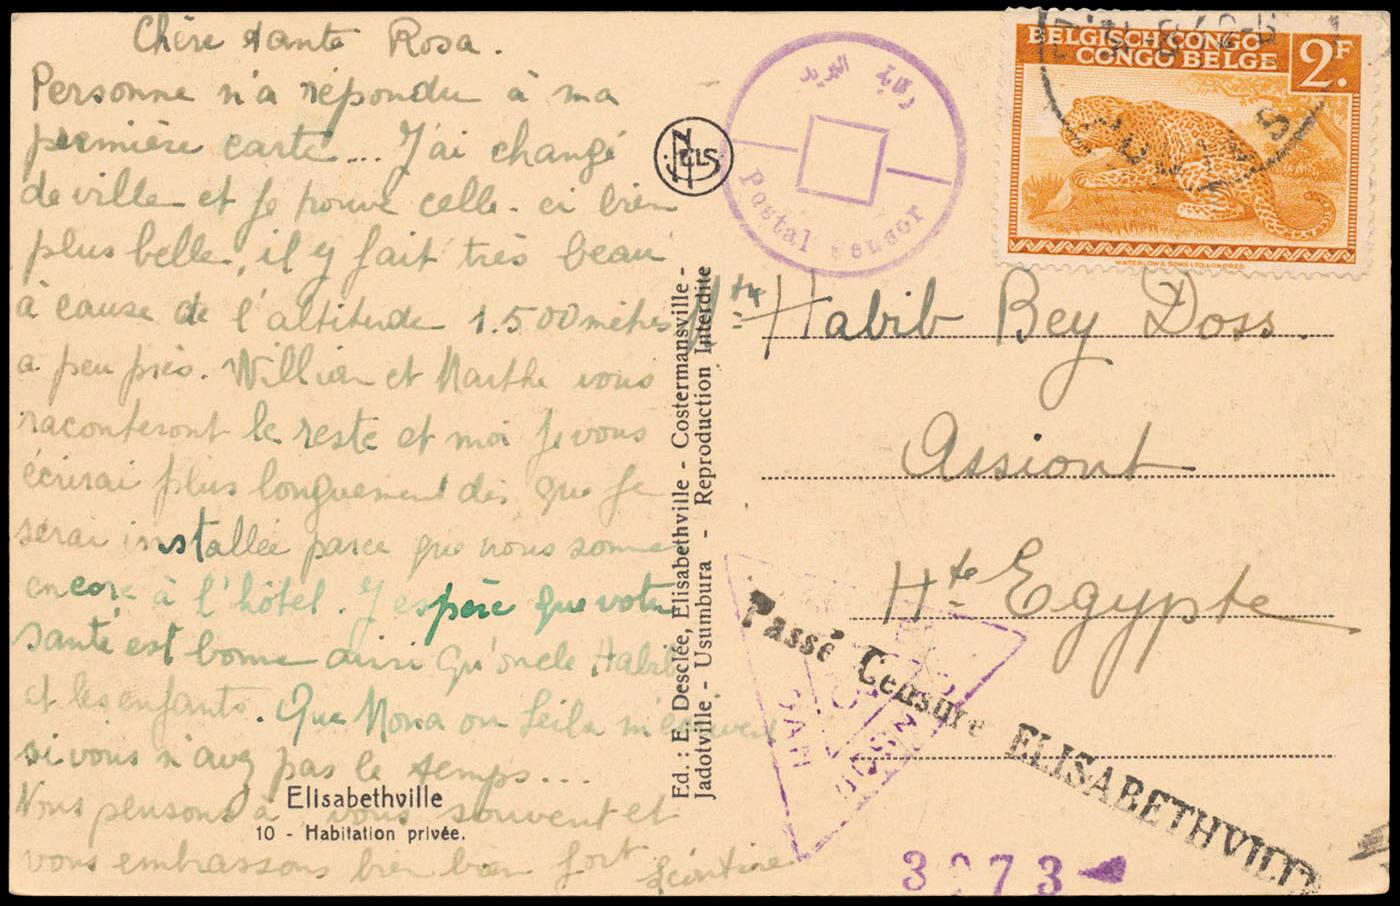 Chère tante Rosa.
Personne n'a répondu à ma
première carte... J'ai changé
de ville et je trouve celle-ci bien
plus belle, il y fait très beau
à cause de l'altitude 1.500 mètres
à peu près. William et Marthe vous
raconteront le reste et moi je vous
écrirai plus longuement dès que je
serai installée parce que nous sommes
encore à l'hôtel. J'espère que votre
santé est bonne ainsi qu'oncle Habib
et les enfants. Que Mona ou Leila m'écrivent
si vous n'avez pas le temps...
Nous pensons à vous souvent et
vous embrassons bien bien fort
Elisabethville
10 - Habitation privée.
NELS
Ed.: E. Desclée, Elisabethville - Costermansville -
Jadotville - Usumbura - Reproduction Interdite
رقابة البريد
Postal Censor
BELGISCH CONGO
CONGO BELGE
2F.
WATERLOW & SONS LTD. LONDRES
Habib Bey Doss.
Assiout
Hte Egypte
Passé Censure ELISABETHVILLE
3 73